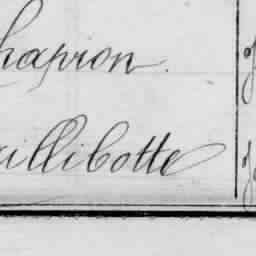 hapron.
illibotte